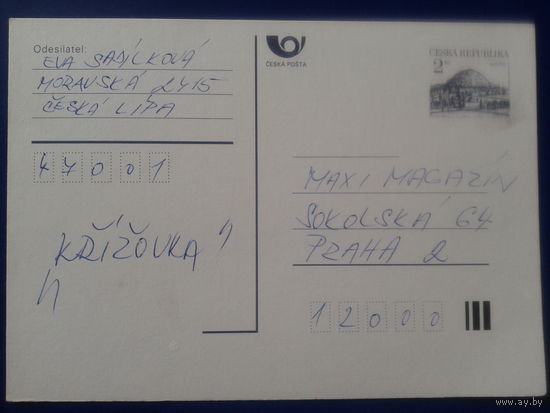 Odesilatel:
EVA SADÍLKOVÁ
MORAVSKÁ 2415
ČESKÁ LÍPA
47001
"KŘÍŽOVKA"
ČESKÁ POŠTA
ČESKÁ REPUBLIKA
2 Kč
MAXI MAGAZÍN
SOKOLSKÁ 64
PRAHA 2
12000
www.ay.by